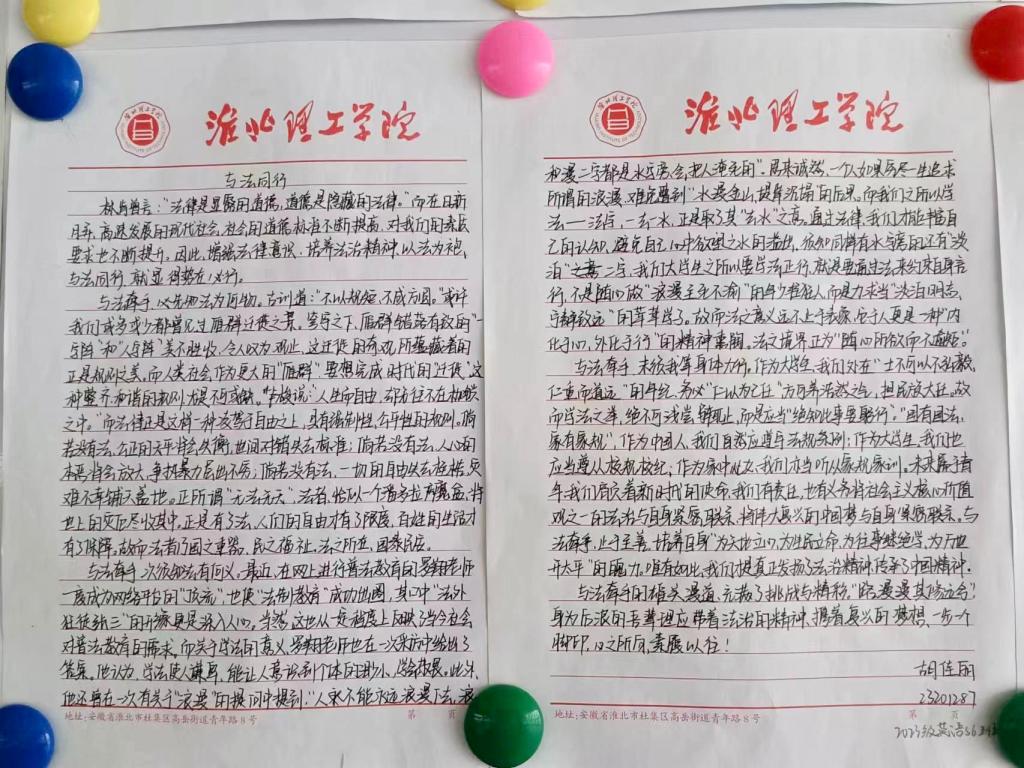 淮北理工学院
与法同行
林肯曾言：“法律是显露的道德，道德是隐藏的法律。”而在日新
月异，高速发展的现代社会，社会的道德标准不断提高，对我们的素质
要求也不断提升。因此，增强法律意识，培养法治精神，以法为
与法同行，就显得势在必行。
与法牵手，必先知法为何物。古训道：“不以规矩，不成方圆。”或许
我们或多或少都曾见过雁群迁徙之景。寥穹之下，雁群错落有致的“一
字阵”和“人字阵”美不胜收，令人叹为观止，这迁徙的奇观所蕴藏着的
正是规则之美，而人类社会作为更大的“雁群”要想完成时代的“迁徙”这
种整齐和谐的规则大是不可或缺。卢梭说：“人生而自由，却无往不在枷锁
之中。”而法律正是这样一种凌驾于自由之上，具有强制性、公平性的规则。倘
若没有法，公正的天平将会失衡，世间对错失去标准；倘若没有法，人心的
本恶将会放大，争执暴力层出不穷；倘若没有法，一切的自由失去桎梏，灾
难不幸铺天盖地。正所谓“无法无天”，法者，恰以一个潘多拉魔盒，将
世上的灾厄尽收其中。正是有了法，人们的自由才有了限度，百姓的生活才
有了保障。故而法者乃国之重器，民之福祉，法之所在，国泰民安。
与法牵手，次很知法有何义。最近，在网上进行普法教育的罗翔老师
一度成为网络平台的“顶流”，也使“法制教育”成功出圈，其口中“法外
狂徒张三”的形象更是深入人心。当然，这也从一定程度上反映了当今社会
对普法教育的需求。而关于学法的意义，罗翔老师也在一次采访中给出了
答案。他认为，学法使人谦卑，能让人意识到个体的渺小，学会敬畏。此外，
他还曾在一次有关于“浪漫”的提问中提到：“人家不能永远浪漫下去，浪
地址:安徽省淮北市杜集区高岳街道青年路8号
第 页
淮北理工学院
和漫二字都是水字旁，会把人淹死的”。居来诚然，一个人如果穷尽一生追求
所谓的浪漫，难免酿到“水漫金山，堤岸沉塌”的后果。而我们之所以学
法——法字，一去一水，正是取了其“去水”之意。通过法律，我们才能丰富自
己的认知，避免自己心中欲望之水的溢出，很知同样有水字旁的还有“淡
泊”二字，我们大学生之所以要学法正行，就是要通过法来约束自身言
行，不是随心做“浪漫至死不渝”的年少轻狂人，而是力求当“淡泊明志，
宁静致远”的莘莘学子。故而法之意义远不止于表象，它于人更是一种“内
化于心，外化于行”的精神素养。法之境界正为“随心所欲而不逾矩”。
与法牵手，末须我等身体力行。作为大学生，我们处在“士不可以不弘毅，
任重而道远”的年纪，务必“仁以为己任”方可养浩然之气，担民族大任。故
而学法之举，绝不可浅尝辄止，而是应当“绝知此事要躬行”。“国有国法，
家有家规”，作为中国人，我们自然应遵守法规条例；作为大学生，我们也
应当遵从校规校纪；作为家中儿女，我们亦当听从家规家训。未来属于青
年，我们肩负着新时代的使命，我们有责任，也有义务将社会主义核心价值
观之一的法治与自身紧密联系，将伟大复兴的中国梦与自身紧密联系。与
法牵手，止于至善，培养自身“为天地立心，为生民立命，为往圣继绝学，为万世
开太平”的魄力。唯有如此，我们想真正发扬了法治精神，传承了中国精神。
与法牵手的雄关漫道，充满了挑战与精彩，“路漫漫其修远兮”，
身为后浪的吾辈理应带着法治的精神，携着复兴的梦想，一步一个
脚印，心之所向，素履以往！
胡佳丽
23201287
地址:安徽省淮北市杜集区高岳街道青年路8号
第 页
2023级英语S6班